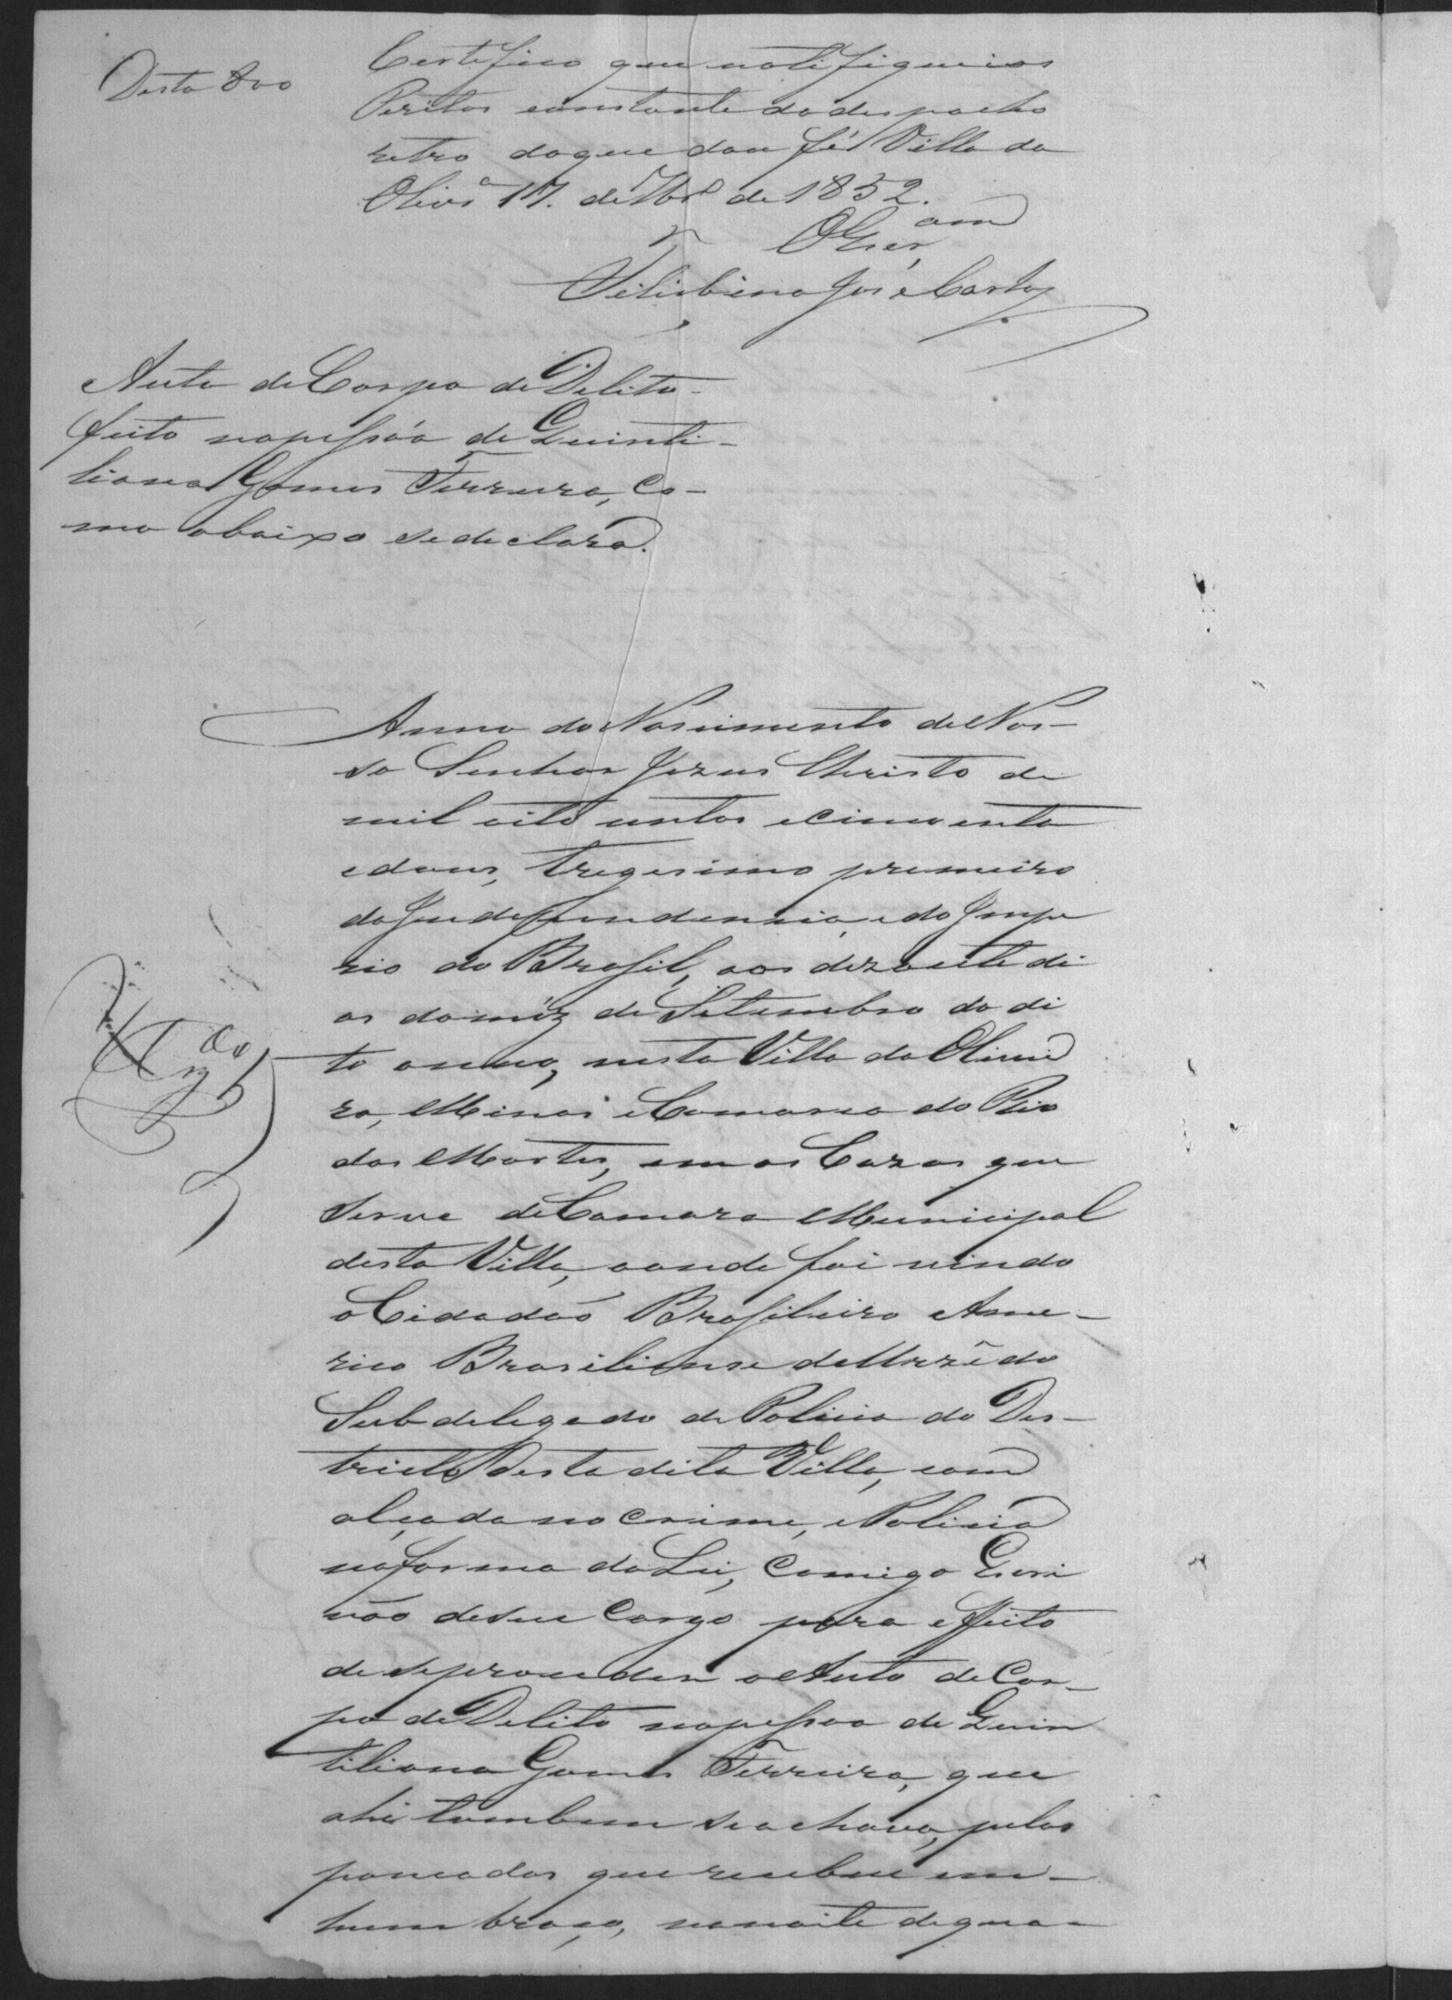 Desta 800
Certifico que notifiquei os
Peritos constante do despacho
retro do que dou fé Villa da
Olivrª 17. de 7brº de 1852.
O Escram
José Carlos
Auto de Corpo de Delito
feito na pessôa de Quinti-
liano Gomes Ferreira, Co-
mo abaixo se declara.
Anno do Nascimento de Nos-
so Senhor Jezus Christo de
mil oito centos e cincoenta
e dous, tregesimo premeiro
da Independencia, e do Impe
rio do Brasil, aos dezasete di
as do mêz de Setembro do di
to anno, nesta Villa da Olivei
ra, Minas e Comarca do Rio
das Mortes, em as Cazas que
Serve de Camara Municipal
desta Villa, aonde foi vindo
o Cidadão Brasileiro Ame-
rico Brasiliense
Subdelegado de Policia do Des-
tricto desta dita Villa, com
alçada no Crime, e Policia
na forma da Lei, Comigo Escri
vão de seu Cargo para effeito
de se proceder o Auto de Cor-
po de Delito na pessoa de Quin
tiliano Gomes Ferreira, que
ahi tambem se achava, pelas
pancadas que recebeu em
hum braço, na noite de qua-